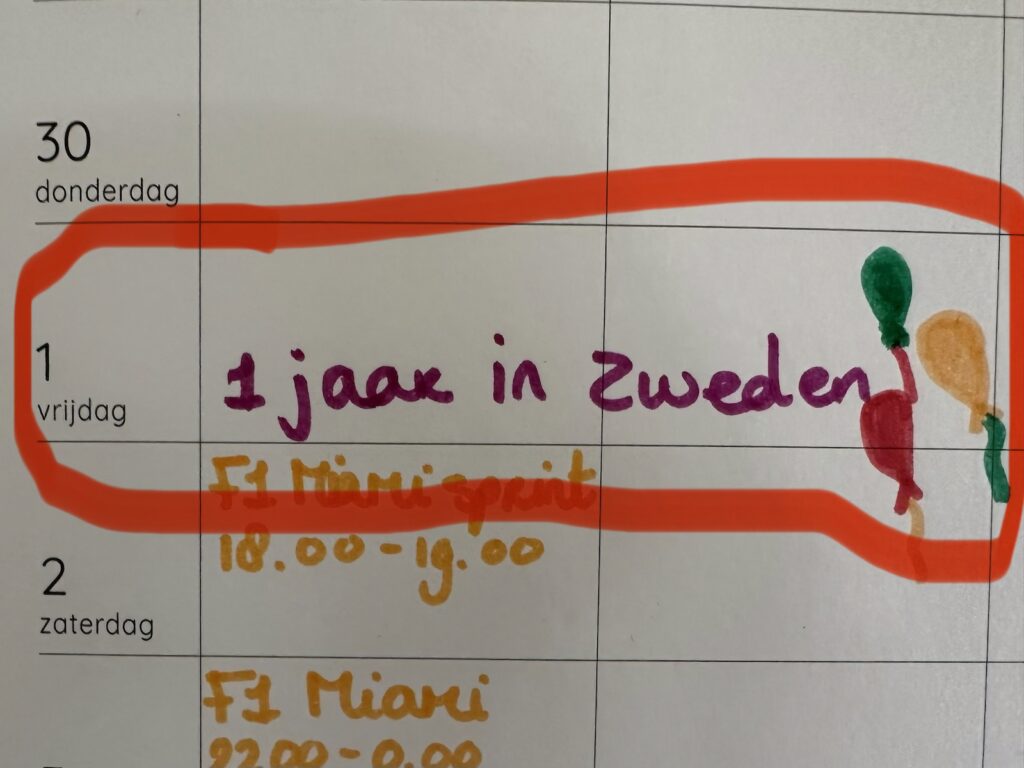 30
donderdag
1
vrijdag
1 jaar in Zweden
F1 Miami sprint
18.00-19.00
2
zaterdag
F1 Miami
22.00-0.00